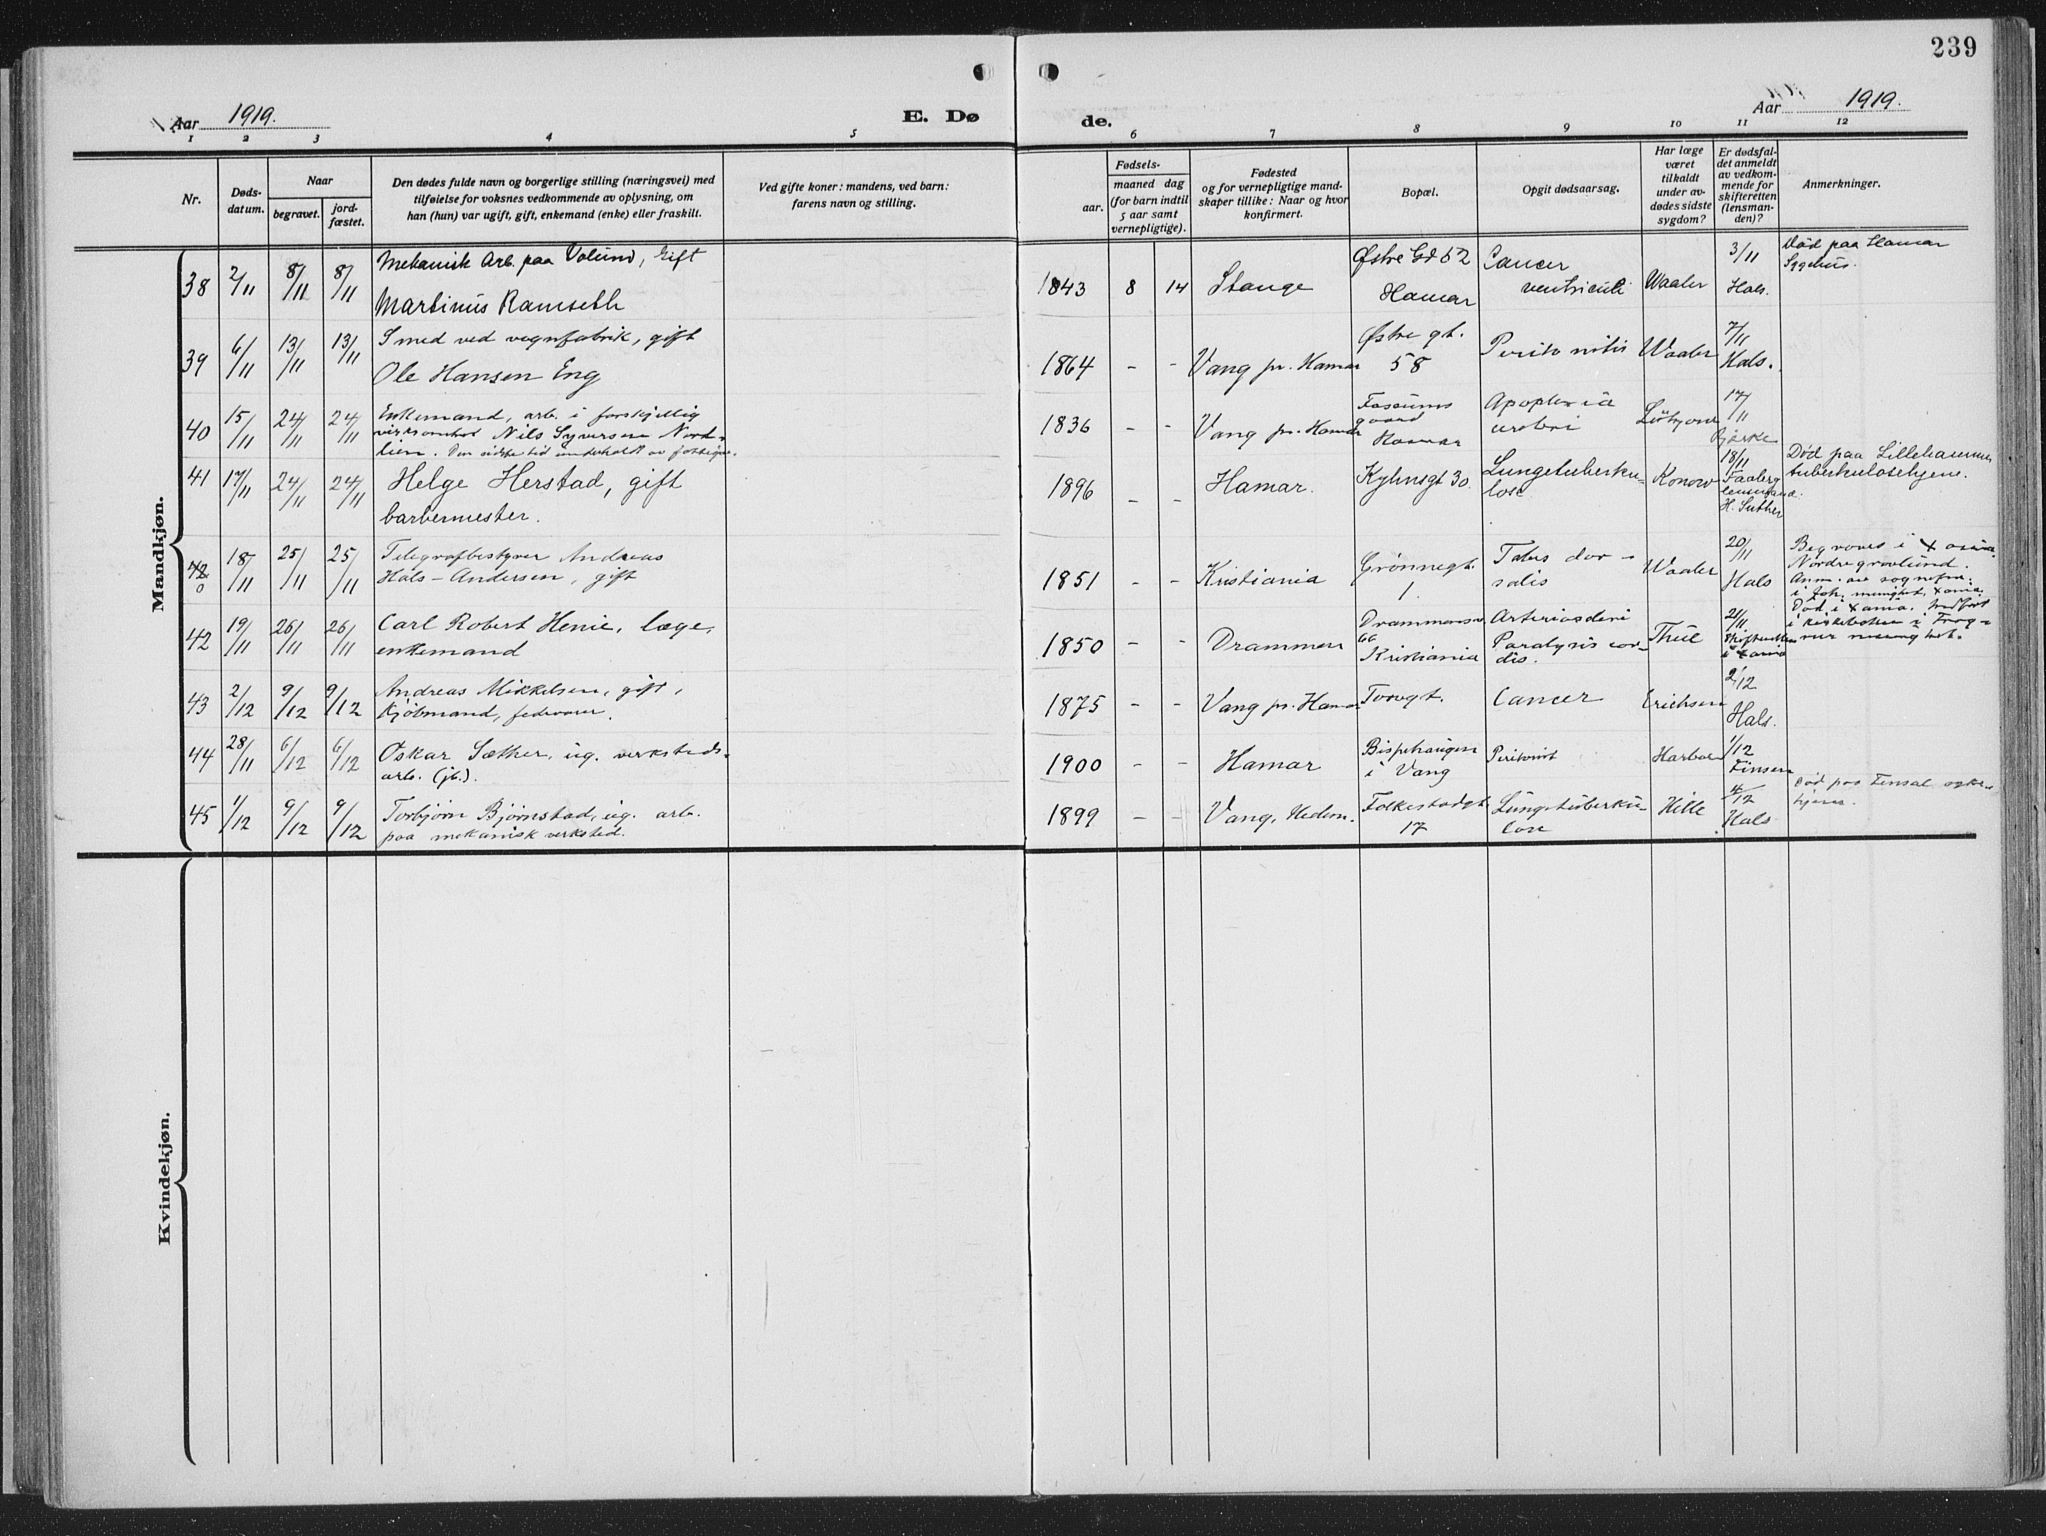 239
Aar 1919.
E. Dø
de.
Aar 1919.
1 2 3 4 5 6 7 8 9 10 11 12
Nr.
Døds-
datum.
Naar
begravet.
jord-
fæstet.
Den dødes fulde navn og borgerlige stilling (næringsvei) med
tilføielse for voksnes vedkommende av oplysning, om
han (hun) var ugift, gift, enkemand (enke) eller fraskilt.
Ved gifte koner: mandens, ved barn:
farens navn og stilling.
Fødsels-
aar.
maaned dag
(for barn indtil
5 aar samt
vernepligtige).
Fødested
og for vernepligtige mand-
skaper tillike: Naar og hvor
konfirmert.
Bopæl.
Opgit dødsaarsag.
Har læge
været
tilkaldt
under av-
dødes sidste
sygdom?
Er dødsfal-
det anmeldt
av vedkom-
mende for
skifteretten
(lensman-
den)?
Anmerkninger.
Mandkjøn.
38 2/11 8/11 8/11
Mekanisk Arb. paa Volund, Gift
Martinus Ramseth
1843 8 14 Stange
Østre Gd 52
Hamar
Cancer
ventriculi
Waaler
3/11
Hals.
Død paa Hamar
Sygehus.
39 6/11 13/11 13/11
Smed ved vognfabrik, gift
Ole Hansen Eng
1864 - - Vang pr. Hamar
Østre gt.
58
Peritonitis
Waaler
7/11
Hals.
40 15/11 24/11 24/11
Enkemand, arb. i forskjellig
virksomhet Nils Syversen Nord-
lien. Den sidste tid underholdt av
1836 - - Vang pr. Hamar
gaard
Hamar
Apoplexia
cerebri
17/11
Bjerke
41 17/11 24/11 24/11
Helge Herstad, gift
barbermester.
1896 - - Hamar.
Kyhnsgt 30
Lungetuberku-
lose
Konow
18/11
Faaberg
lensmand.
H. Suther
Død paa Lillehammer
tuberkulosehjem.
42 0 18/11 25/11 25/11
Telegrafbestyrer Andreas
Hals-Andersen, gift
1851 - - Kristiania
Grønnegt.
1.
Tabes dor-
salis
Waaler
20/11
Hals
Begraves i Xania.
Nordre gravlund.
Anm. av sognepr.
i Joh. menighet, Xania.
42 19/11 26/11 26/11
Carl Robert Henie, læge,
enkemand
1850 - - Drammen
Drammensv.
66
Kristiania
Paralysis cor-
dis.
21/11
Skifteretten
i Xania
Død i Xania. Indført
i kirkeboken i Frog-
ner menighet.
43 2/12 9/12 9/12
Andreas Mikkelsen, gift,
Kjøbmand, fedevarer.
1875 - - Vang pr. Hamar
Torvgt.
Cancer
Erichsen
2/12
Hals.
44 28/11 6/12 6/12
Oskar Sæther, ug. verksteds-
arb. (jb.).
1900 - - Hamar
Bispehaugen
i Vang
Peritonit
Harboe
1/12
Finsen
45 1/12 9/12 9/12
Torbjørn Bjørnstad, ug. arb.
paa mekanisk verksted.
1899 - - Vang, Hedem.
Folkestadgt.
17
Lungetuberku-
lose
Hille
4/12
Hals
Død paa
Kvindekjøn.